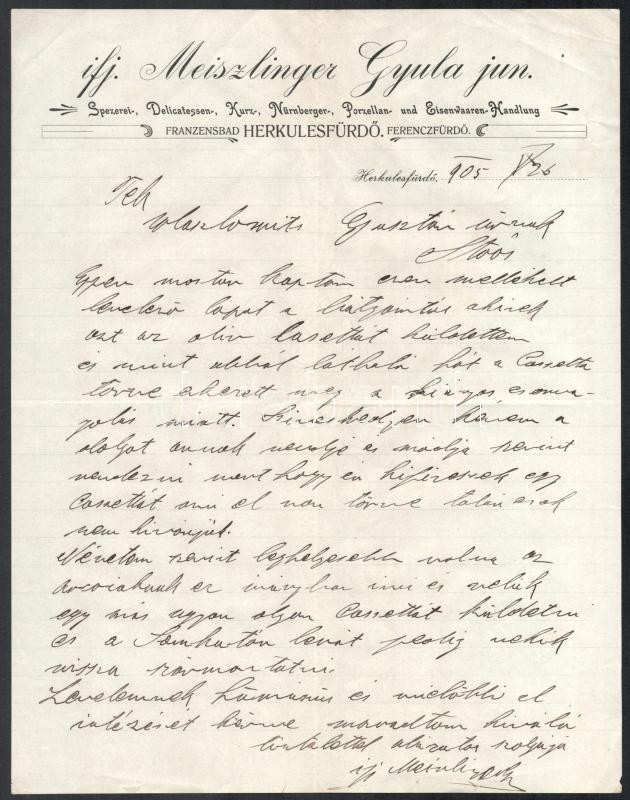 ifj. Meiszlinger Gyula jun.
Spezerei-, Delicatessen-, Kurz-, Nürnberger-, Porzellan- und Eisenwaaren-Handlung
FRANZENSBAD HERKULESFÜRDŐ. FERENCZFÜRDŐ.
Herkulesfürdő, 905 26
Tek
Gusztáv úrnak
Éppen moston kaptam ezen mellékelt
levelező lapot a akinek
azt az oliv Casettát küldöttem
és mint abból látható hát a Cassetta
törve érkezett meg a hiányos csoma-
golás miatt. Sziveskedjen kérem a
dolgot annak rendje és módja szerint
rendezni mert hogy én kifizessek egy
Cassettát ami el van törve talán csak
nem kivánják.
Nézetem szerint leghelyesebb volna az
ez irányban irni és velük
egy más ugyan olyan Cassettát küldetni
és a pedig nekik
vissza származtatni.
Levelemnek és mielőbbi el
intézését kérve maradtam kiváló
tisztelettel alázatos szolgája
ifj Meiszlinger